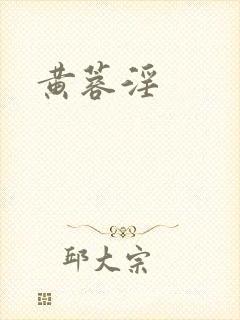 黄蓉淫
邱大宗